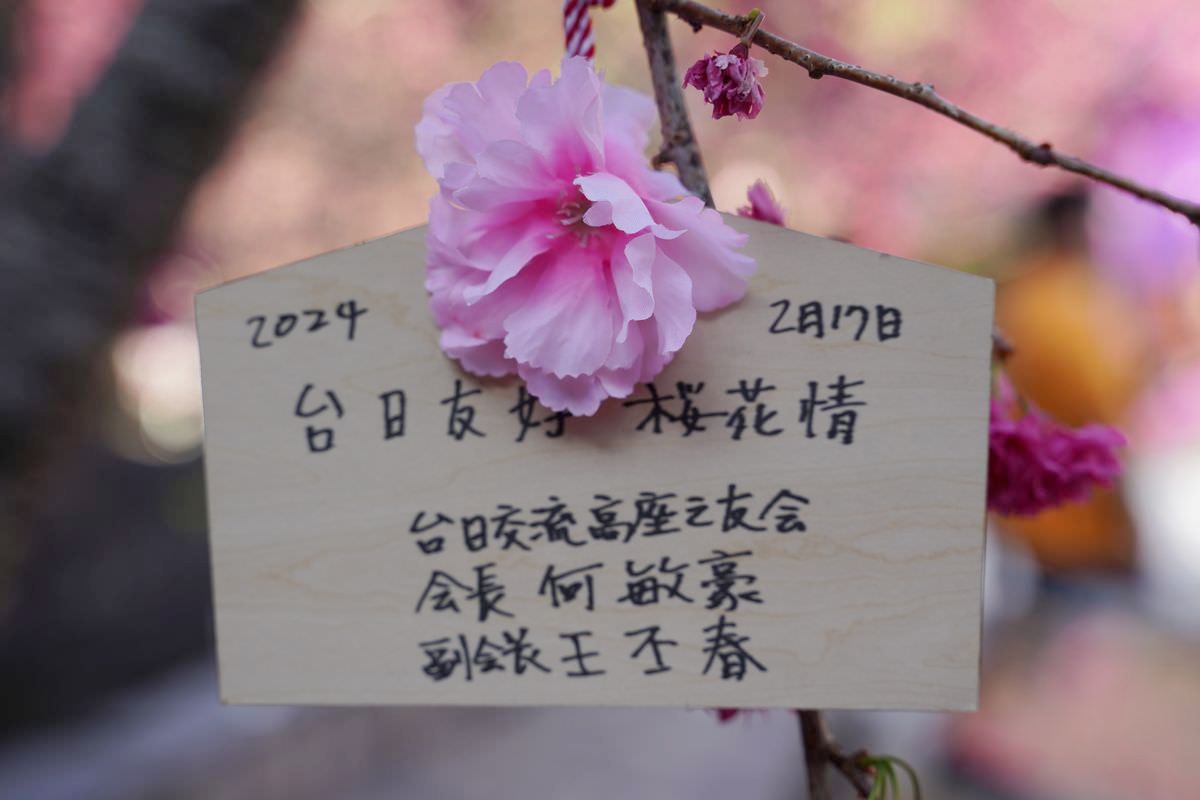 2024 2月17日
台日友好 桜花情
台日交流高座之友会
会長 何敏豪
副会长王丕春